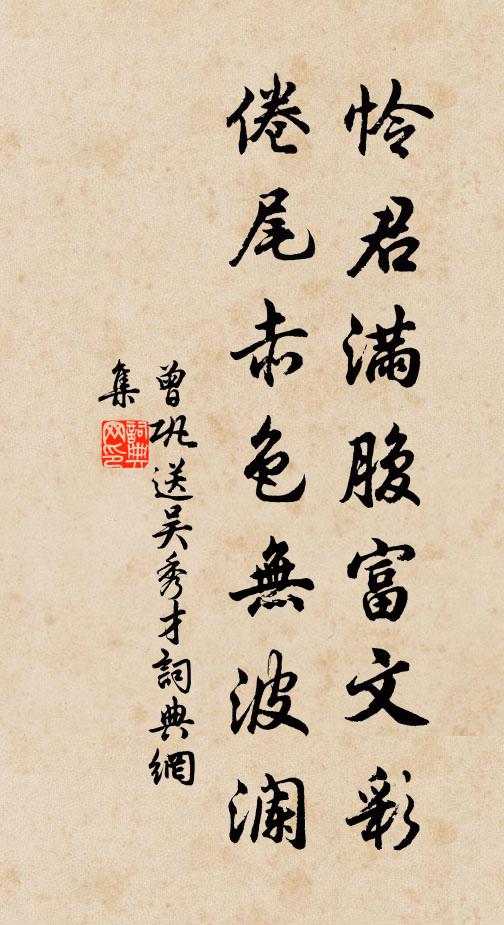 怜君满腹富文彩
倦尾赤色無波澜
曾巩送吴秀才詞典網
集
詞典网印